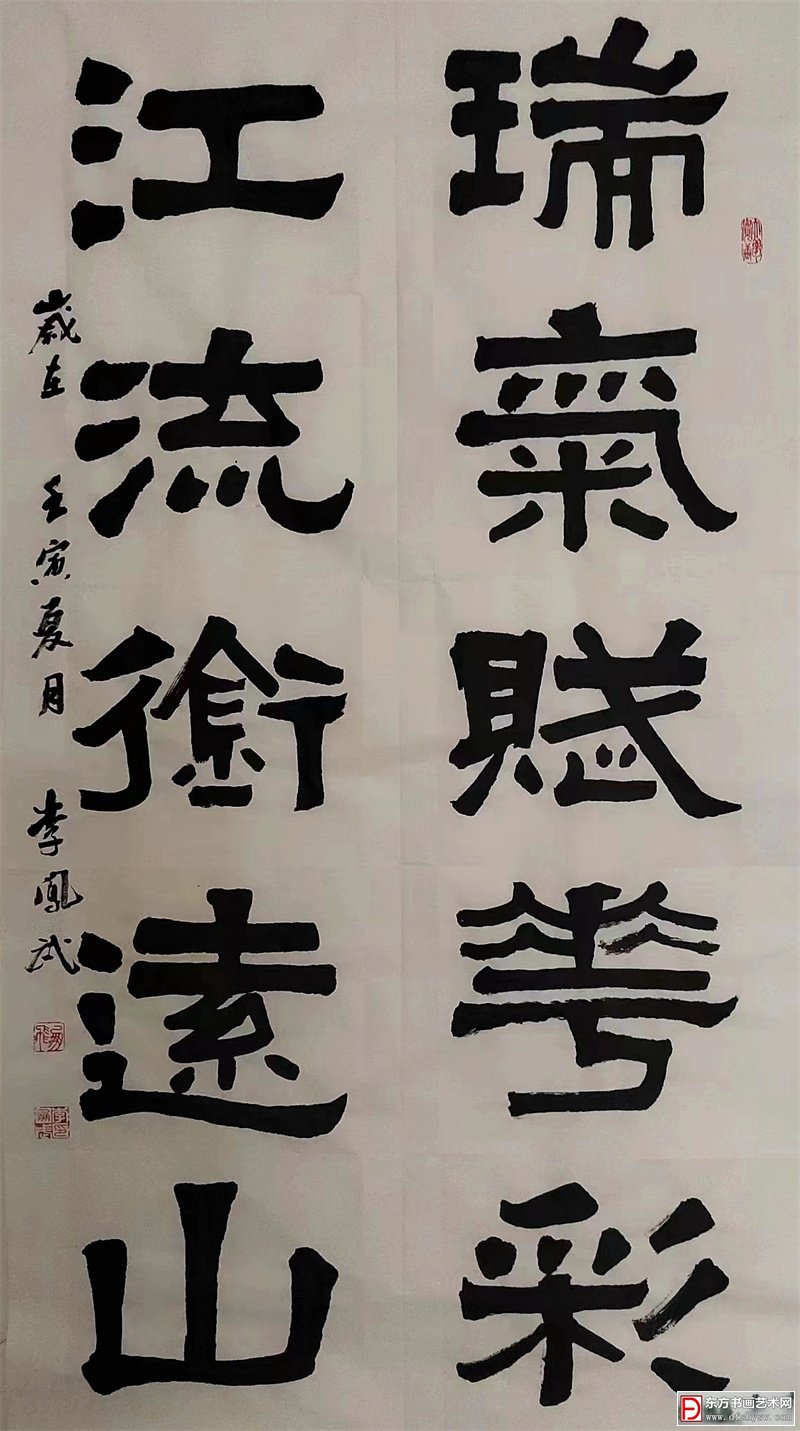 瑞氣賦華彩
江流銜遠山
歲在 壬寅夏月 李鳳武
东方书画艺术网
www.dfshysw.com